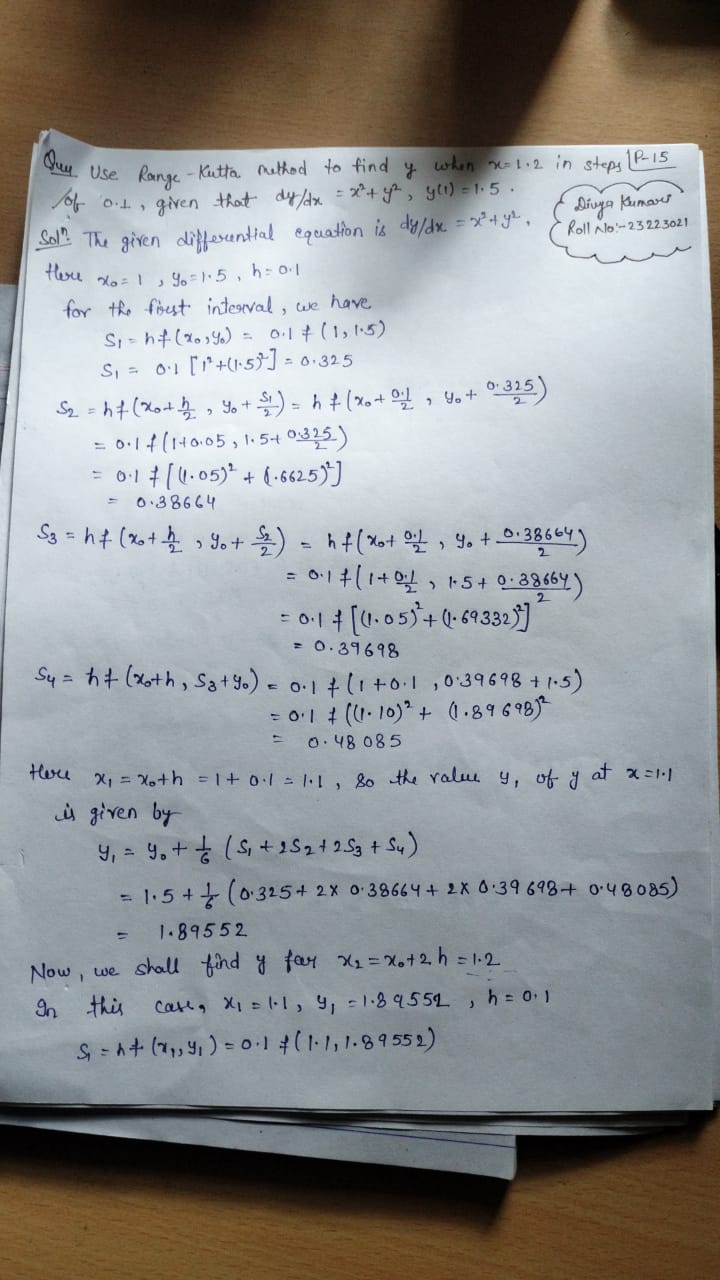 Que Use Range-Kutta method to find y when x=1.2 in steps P-15
of 0.1, given that dy/dx = x²+y², y(1)=1.5.
Divya Kumari
Roll No:-23223021
Solⁿ: The given differential equation is dy/dx = x²+y².
Here x₀=1, y₀=1.5, h=0.1
for the first interval, we have
S₁ = hf(x₀,y₀) = 0.1 f(1,1.5)
S₁ = 0.1 [1²+(1.5)²] = 0.325
S₂ = hf(x₀+h/2, y₀+S₁/2) = hf(x₀+0.1/2, y₀+0.325/2)
= 0.1 f(1+0.05, 1.5+0.325/2)
= 0.1 f[(1.05)² + (.6625)²]
= 0.38664
S₃ = hf(x₀+h/2, y₀+S₂/2) = hf(x₀+0.1/2, y₀+0.38664/2)
= 0.1 f(1+0.1/2, 1.5+0.38664/2)
= 0.1 f[(1.05)²+(1.69332)²]
= 0.39698
S₄ = hf(x₀+h, S₃+y₀) = 0.1 f(1+0.1, 0.39698+1.5)
= 0.1 f((1.10)² + (1.89698)²
= 0.48085
Here x₁ = x₀+h = 1+0.1 = 1.1, So the value y₁ of y at x=1.1
is given by
y₁ = y₀ + 1/6 (S₁+2S₂+2S₃+S₄)
= 1.5 + 1/6 (0.325+2x0.38664+2x0.39698+0.48085)
= 1.89552
Now, we shall find y for x₂=x₀+2h=1.2
In this case, x₁=1.1, y₁=1.89552, h=0.1
S₁ = hf(x₁,y₁) = 0.1 f(1.1,1.89552)